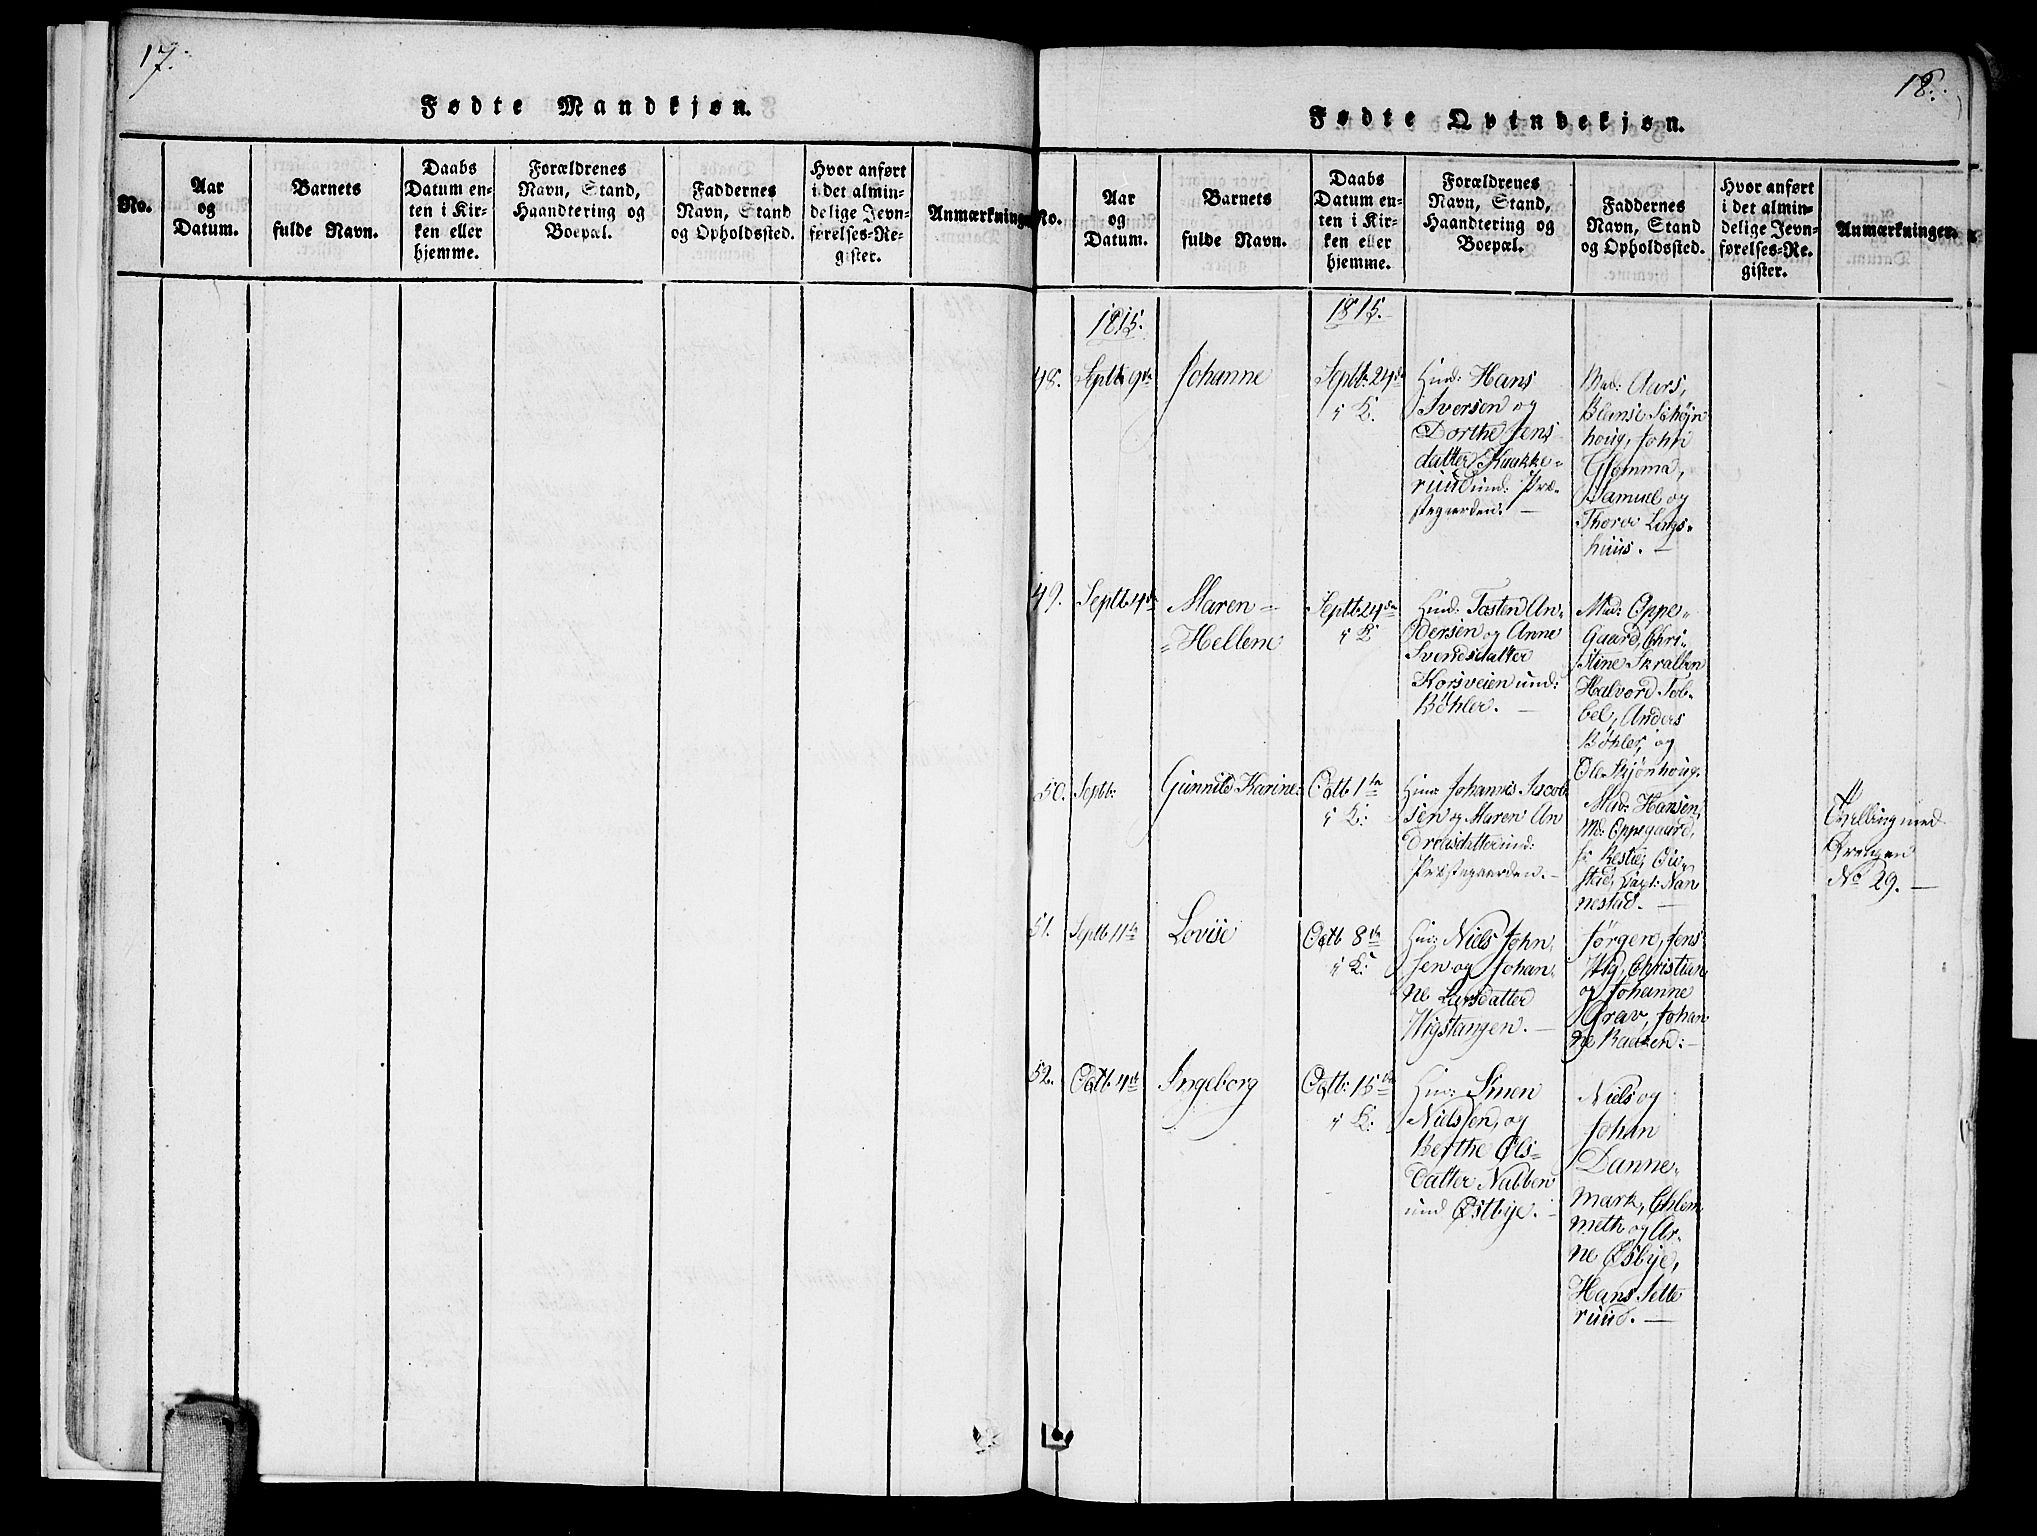 17.
Fødte Mandkjøn.
No.
Aar
og
Datum.
Barnets
fulde Navn.
Daabs
Datum en-
ten i Kir-
ken eller
hjemme.
Forældrenes
Navn, Stand,
Haandtering og
Boepæl.
Faddernes
Navn, Stand
og Opholdssted.
Hvor anført
i det almin-
delige Jevn-
førelses-Re-
gister.
Anmærkninger
18.
Fødte Qvindekjøn.
No.
Aar
og
Datum.
Barnets
fulde Navn.
Daabs
Datum en-
ten i Kir-
ken eller
hjemme.
Forældrenes
Navn, Stand,
Haandtering og
Boepæl.
Faddernes
Navn, Stand
og Opholdssted.
Hvor anført
i det almin-
delige Jevn-
førelses-Re-
gister.
Anmærkninger.
1815.
1815.
48.
Septb 9de
Johanne
Septb: 24de
i K:
Hans
Iversen og
Dorthe Jens
datter Kaakke-
ruud und: Præ-
stegaarden. —
Mad: Aars,
Schøjn
houg, John
Glomma,
Samuel og
Thore Lings-
huus. —
49.
Septb. 4de
Maren-
-Hellene
Septb. 24de
i K
Tosten An-
dersen og Anne
Svendsdatter
Korsveien und:
Bøhler. —
Mad: Oppe-
gaard, Chri-
stine Skralben
Halvord Tob-
bel, Anders
Bøhler, og
Ole Skjønhoug.
50.
Septb:
Gunnild Karine:
Octb 1ste
i K:
Johannes Jacob
sen og Maren An
dreasdatter und:
Præstegaarden. —
Mad: Hansen,
Md: Oppegaard,
Nan
nestad. —
Tvilling med
Drengen
No 29. —
51.
Septb 11te
Lovise
Octb 8de
i K:
Niels John
sen og Johan
ne Larsdatter
Wigstangen. —
Jørgen, Jens
Wig, Christian
og Johanne
Grav, Johan
ne Baazen: —
52.
Octb. 4de
Ingeborg
Octb: 15de
i K:
Simen
Nielssen, og
Berthe Ols-
datter Nabben
und Østbye. —
Niels og
Johan
Danne-
mark, Chlem
meth og Ar-
ne Østbye,
Hans Sette
ruud. —